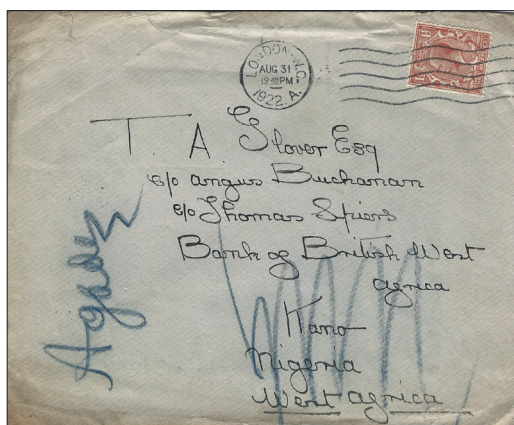 LONDON. W.C.
AUG 31
12.45 PM
1922. A.
T. A. Glover Esq
c/o Angus Buchanan
c/o Thomas Spiers
Bank of British West
Africa
Kano
Nigeria
West Africa
Agadez